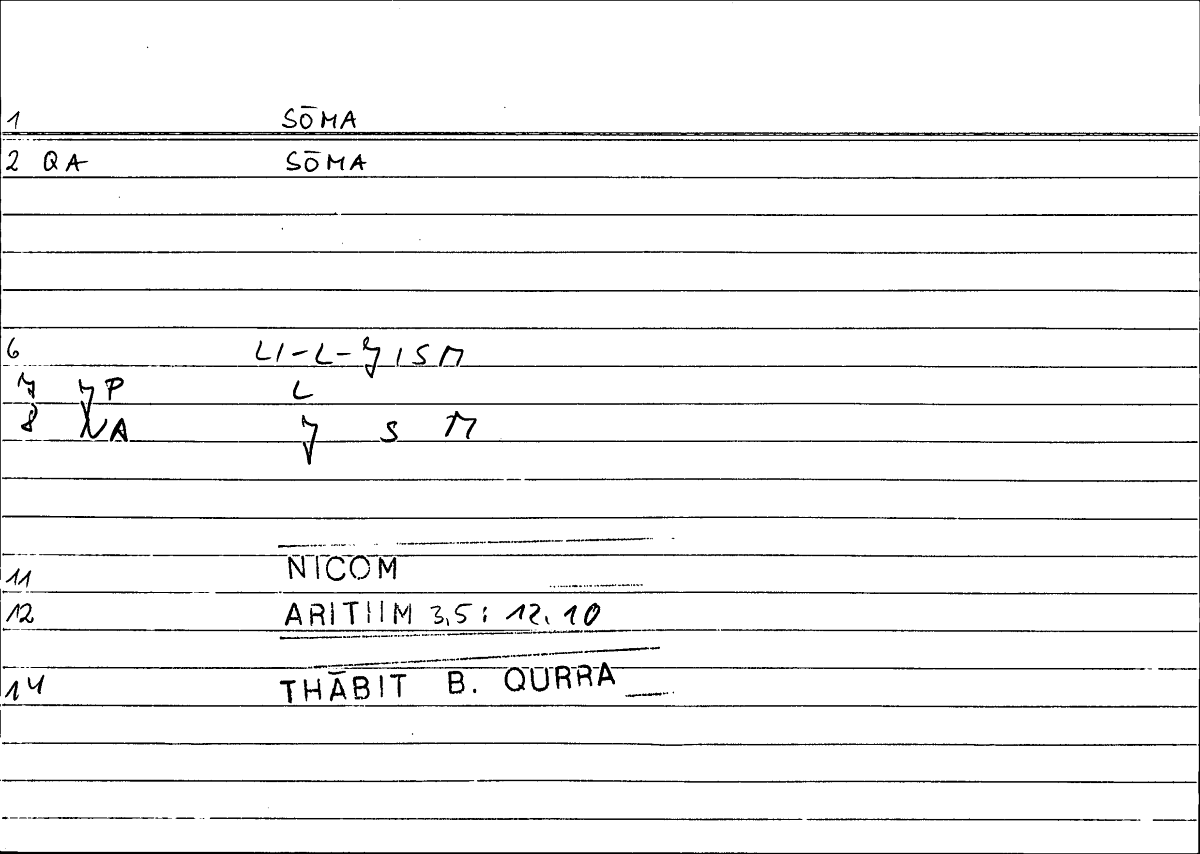 1 SŌMA
2 QA SŌMA
6 LI-L-ǧISM
7 P L
8 NA ǧ S M
11 NICOM
12 ARITHM 3,5; 12.10
14 THĀBIT B. QURRA